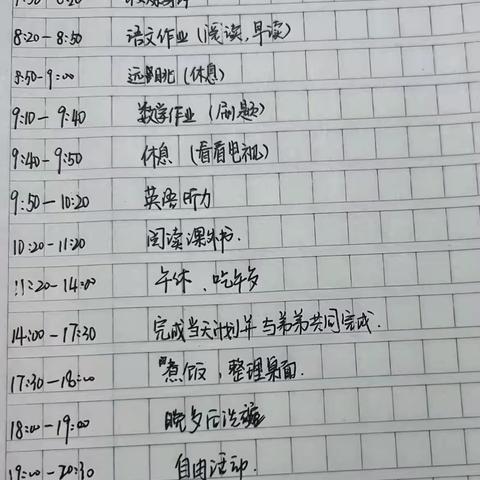 8:20-8:50 语文作业(阅读,早读)
8:50-9:00 远眺(休息)
9:10-9:40 数学作业(刷题)
9:40-9:50 休息(看看电视)
9:50-10:20 英语听力
10:20-11:20 阅读课外书.
11:20-14:00 午休、吃午夕
14:00-17:30 完成当天计划并与弟弟共同完成.
17:30-18:00 煮饭,整理桌面.
18:00-19:00 晚夕后洗碗
19:00-20:30 自由活动.